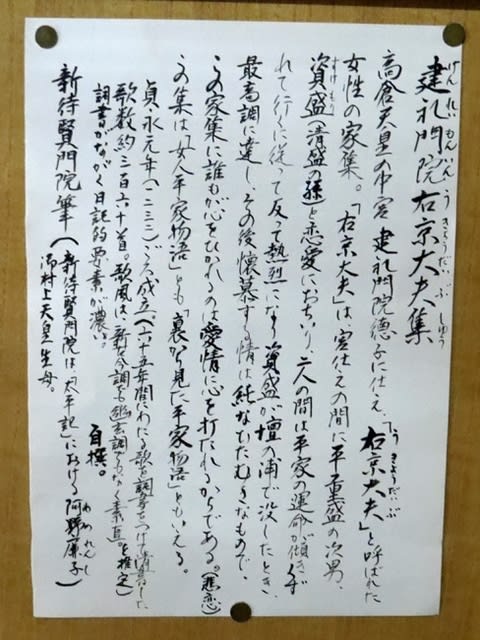 建礼門院右京大夫集
けんれいもんいん うきょうだいぶ しゅう
高倉天皇の中宮 建礼門院徳子に仕え、「右京大夫」と呼ばれた
うきょうだいぶ
女性の家集。「右京大夫」は、宮仕えの間に平重盛の次男、
資盛(清盛の孫)と恋愛におちいり、二人の間は平家の運命が傾きくず
すけもり
れて行くに従って反って熱烈になり、資盛が壇の浦で没したとき、
最高調に達し、その後懐慕する情は純なひたむきなもので、
この家集に誰もが心をひかれるのは愛情に心を打たれるからである。(悲恋)
この集は「女人平家物語」とも「裏から見た平家物語」ともいえる。
貞永元年(一二三二)ごろ成立
歌数約三百六十首。歌風は、新古今調でも幽玄調でもなく素直。
詞書がながく日記的要素が濃い。
自撰。
新待賢門院筆(新待賢門院は「太平記」における阿野廉子)
あのれんし
後村上天皇生母。